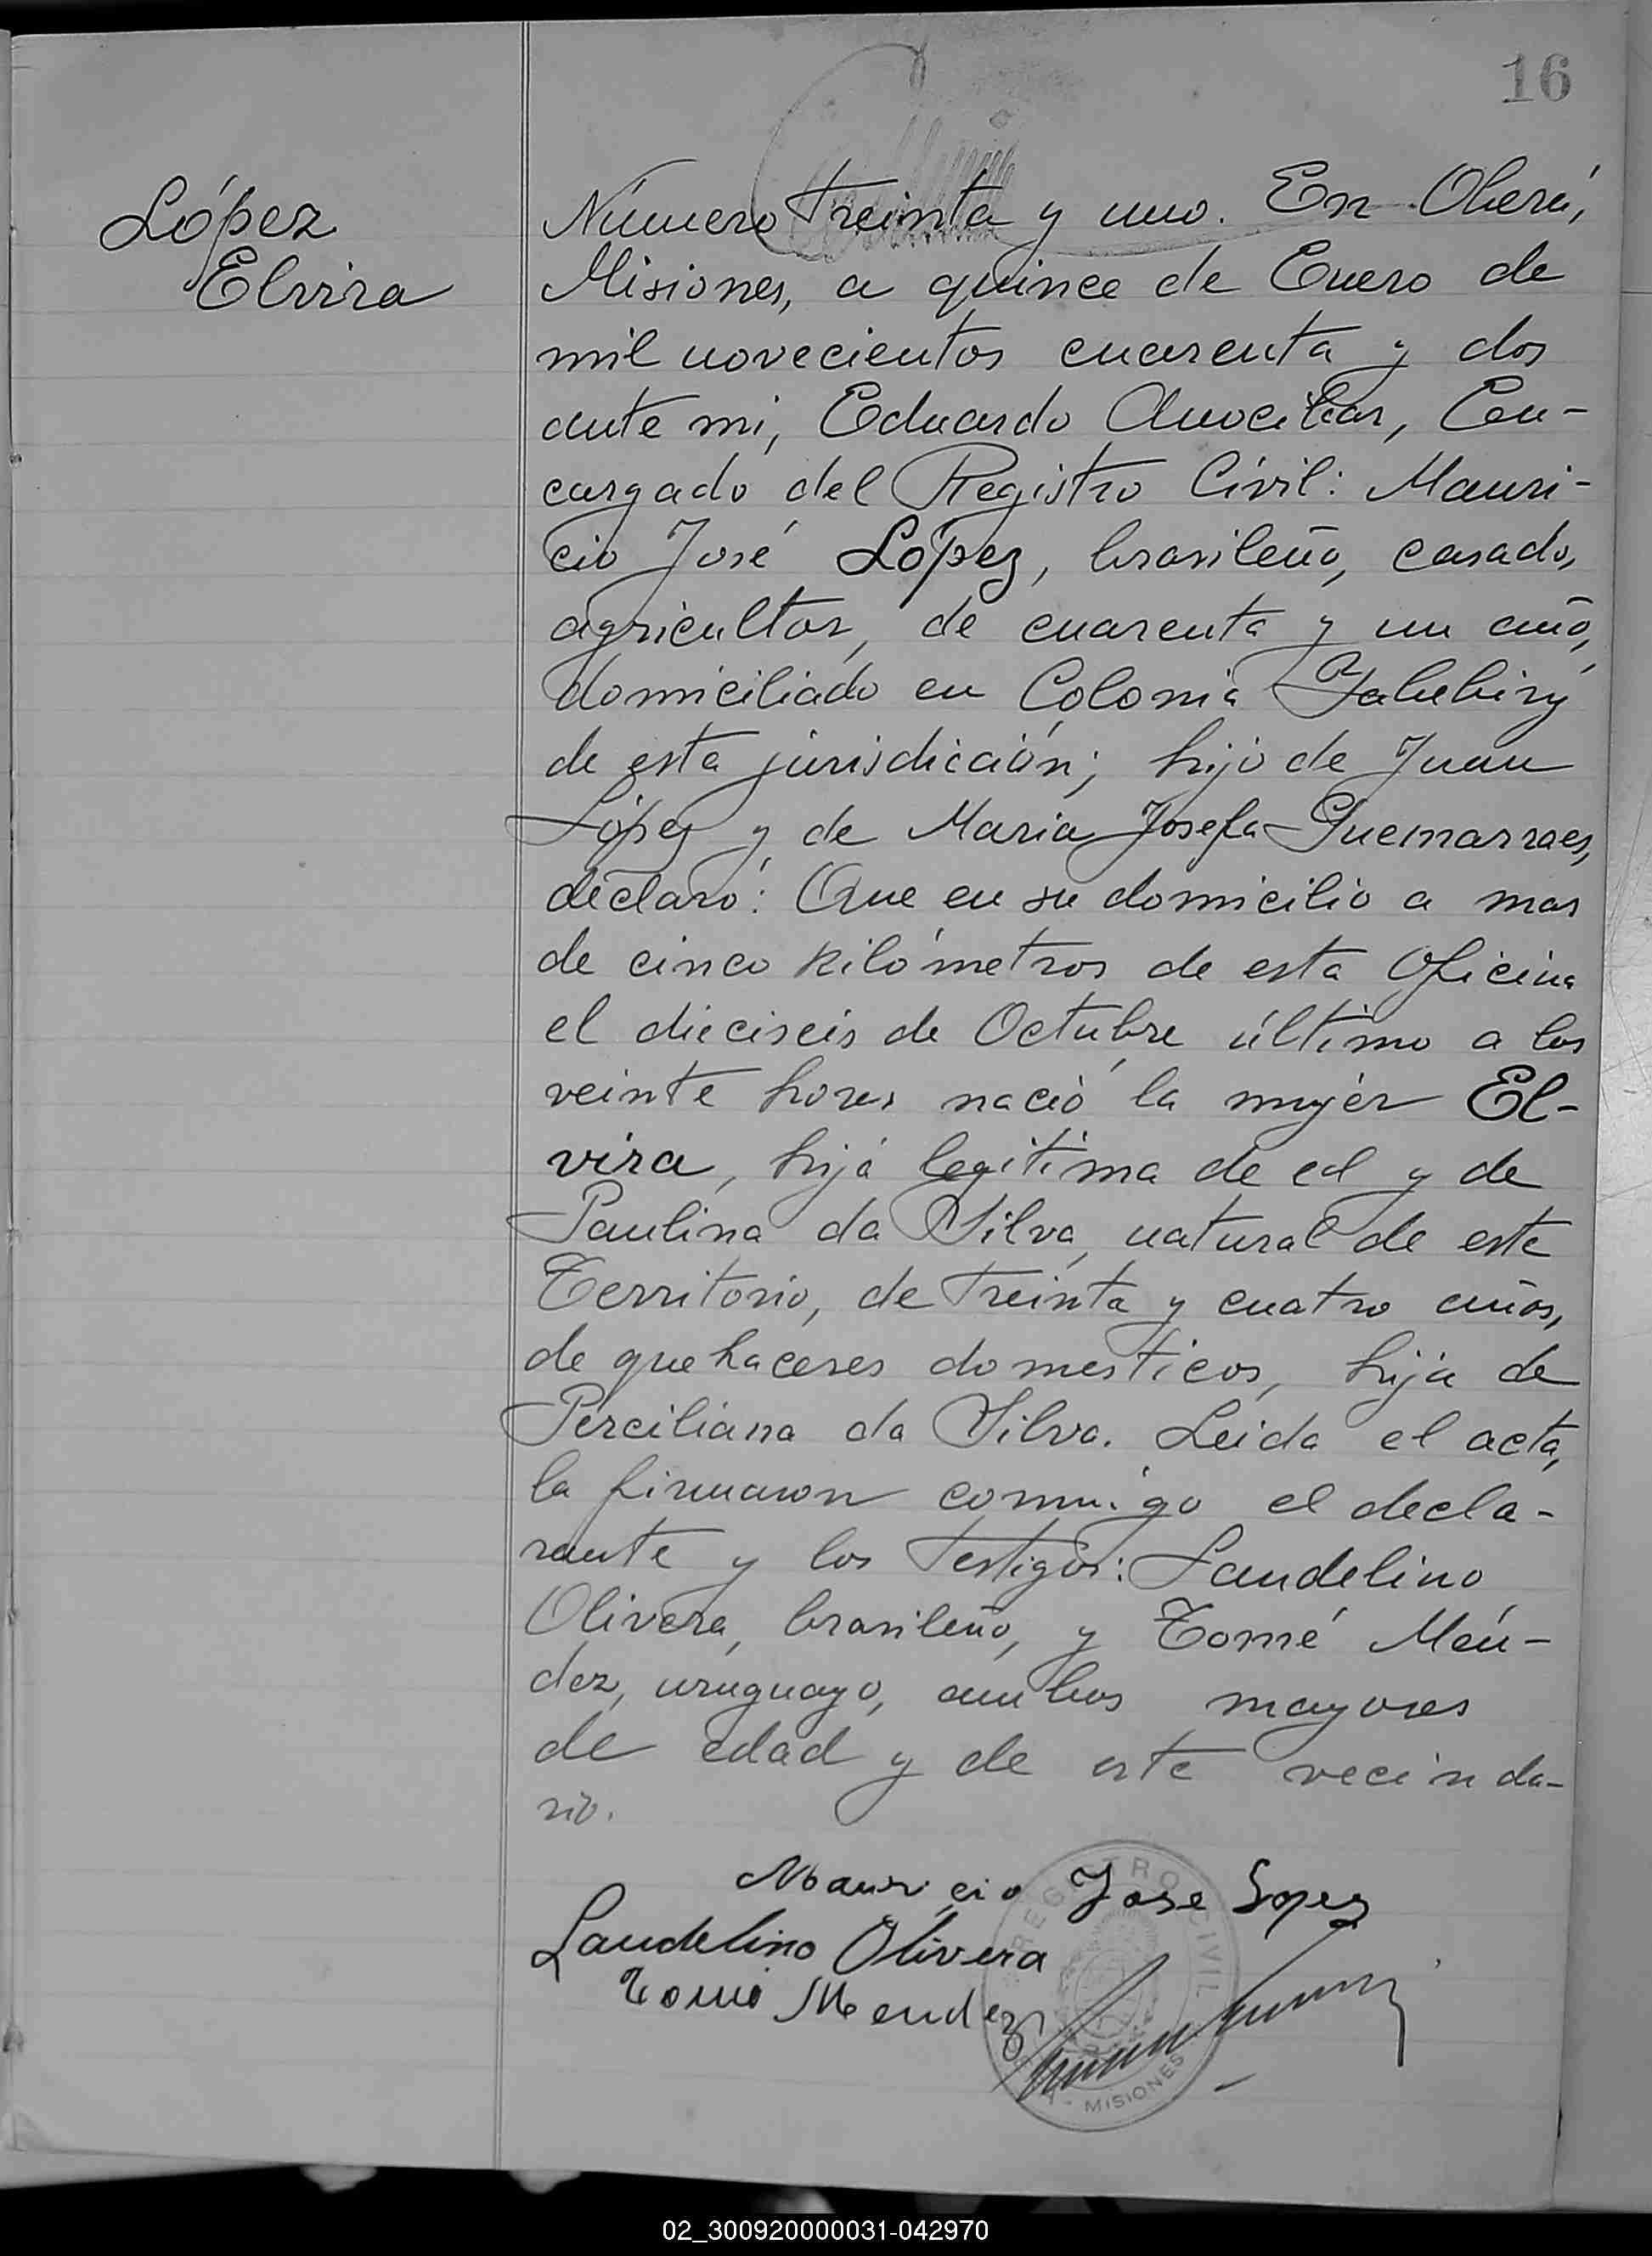 16
López
Elvira
Número treinta y uno. En Oberá,
Misiones, a quince de Enero de
mil novecientos cuarenta y dos
ante mi, Eduardo Anocibar, En-
cargado del Registro Civil: Mauri-
cio José López, brasileño, casado,
agricultor, de cuarenta y un año,
domiciliado en Colonia Yabebiry
de esta jurisdicción; hijo de Juan
López y de Maria Josefa Guemarraes,
declaró: Que en su domicilio a mas
de cinco kilómetros de esta Oficina
el dieciseis de Octubre último a las
veinte horas nació la mujer El-
vira, hija legitima de el y de
Paulina da Silva, natural de este
Territorio, de treinta y cuatro años,
de quehaceres domesticos, hija de
Perciliana da Silva. Leida el acta,
la firmaron conmigo el decla-
rante y los testigos: Laudelino
Olivera, brasileño, y Tomé Mén-
dez, uruguayo, ambos mayores
de edad y de este vecinda-
rio.
Mauricio Jose Lopez
Laudelino Olivera
Tomé Mendez
REGISTRO CIVIL
MISIONES
02_300920000031-042970